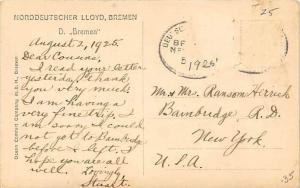 NORDDEUTSCHER LLOYD, BREMEN
D. „Bremen"
August 2, 1925
Dear Cousins;
I read your letter
yesterday & thank
you very much.
I am having a
very fine trip. I
am sorry I could
not get to Bainbridge
before I left. I
hope you are all
well. Lovingly
Stuart.
DEUTSCHE
1925
25
Mr. & Mrs. Ransom Herrick
Bainbridge R.D.
New York.
U.S.A.
35